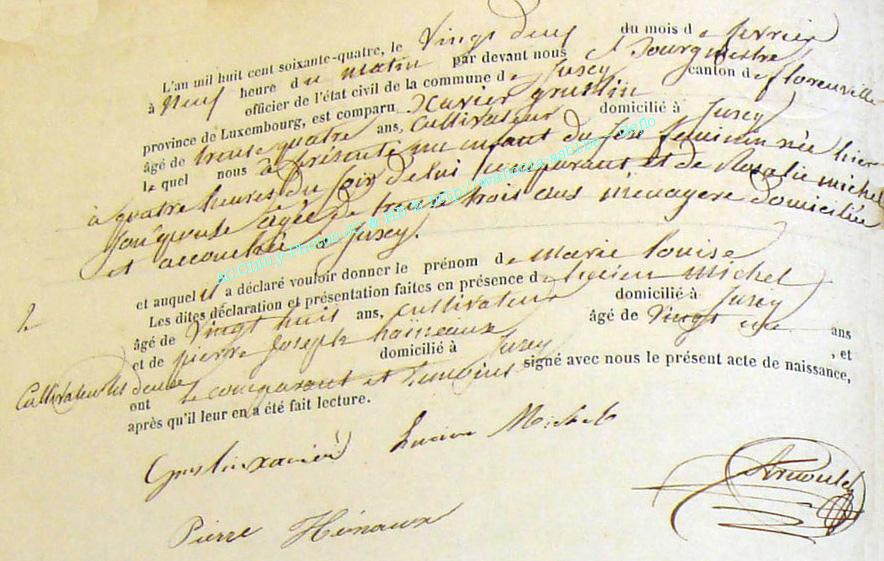 L'an mil huit cent soixante-quatre, le vingt deux du mois de fevrier
à neuf heure du matin par devant nous Bourgmestre
officier de l'état civil de la commune de Jusey canton de florenville
province de Luxembourg, est comparu Xavier gruslin
âgé de trente quatre ans, Cultivateur domicilié à Jusey
le quel nous a présenté un enfant du sexe feminin née hier
à quatre heures du soir de lui comparant et de Rosalie michel
son épouse agée de trente trois ans menagere domiciliée
et accouchée à Jusey.
et auquel il a déclaré vouloir donner le prénom de marie louise
Les dites déclaration et présentation faites en présence de lucien michel
âgé de vingt huit ans, cultivateur domicilié à Jusey
et de pierre joseph hainaux âgé de vingt ans
Cultivateur domicilié à Jusey , et
ont le comparant et temoins signé avec nous le présent acte de naissance,
après qu'il leur en a été fait lecture.
Gruslin xavier Lucien Michel
Arnould
Pierre Hénaux